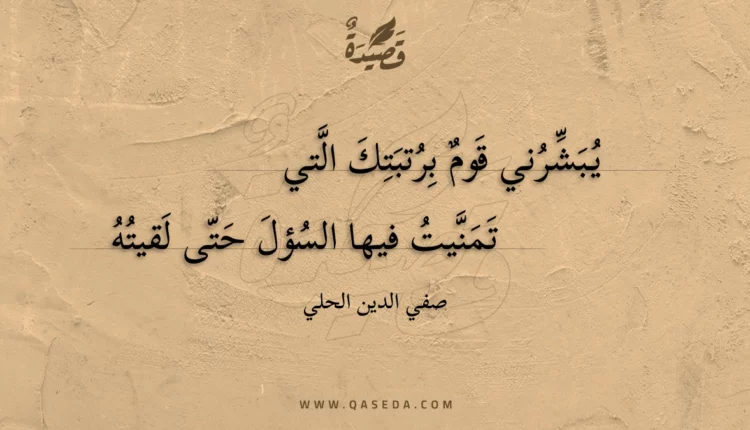 قَصِيدَةٌ
يُبَشِّرُني قَومٌ بِرُتبَتِكَ الَّتي
تَمَنَّيتُ فيها السُؤلَ حَتّى لَقيتُهُ
صفي الدين الحلي
WWW.QASEDA.COM